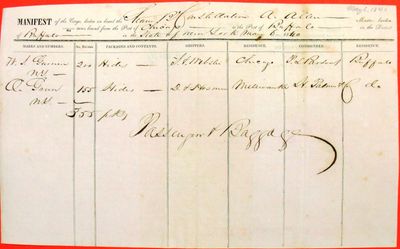 May 6, 1840
MANIFEST of the Cargo, laden on board the Steam Bt Constellation A. Allen Master, laden
now bound from the Port of to the Port of Buffalo in the District
of Buffalo in the State of New York May 6 1840
MARKS AND NUMBERS. No. Entries PACKAGES AND CONTENTS. SHIPPERS. RESIDENCE. CONSIGNEES. RESIDENCE.
W. S. Gurnee 200 Hides — Webster Chicago Buffalo
NY —
A. Gunn 155 Hides — D. S. Milwaukee & Co do
NY —
355 pkgs
Passengers & Baggage